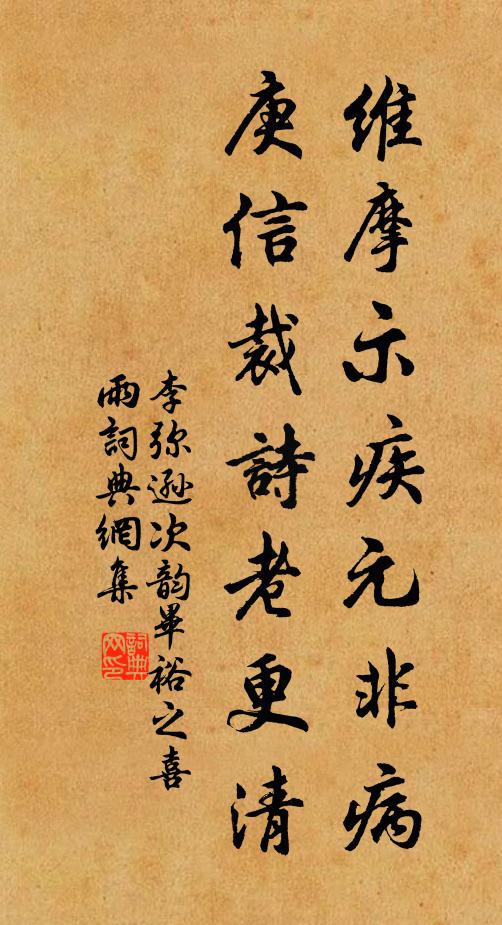 维摩示疾元非病
庾信裁詩老更清
李弥遜次韵畢裕之喜
雨詞典網集
詞典
网印